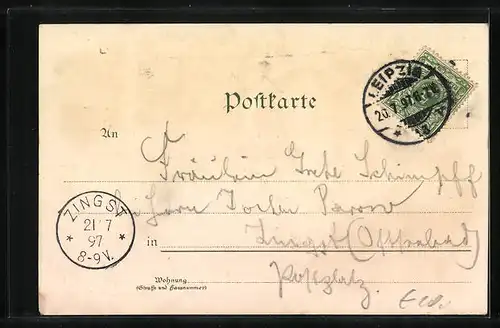 LEIPZIG
20.7.97.6-7N.
Postkarte
An
Fräulein Grete Schimpff
bei Herrn Parow
ZINGST
21 7
97
8-9V.
in Zingst (Ostseebad)
Postplatz.
Wohnung
(Straße und Hausnummer)